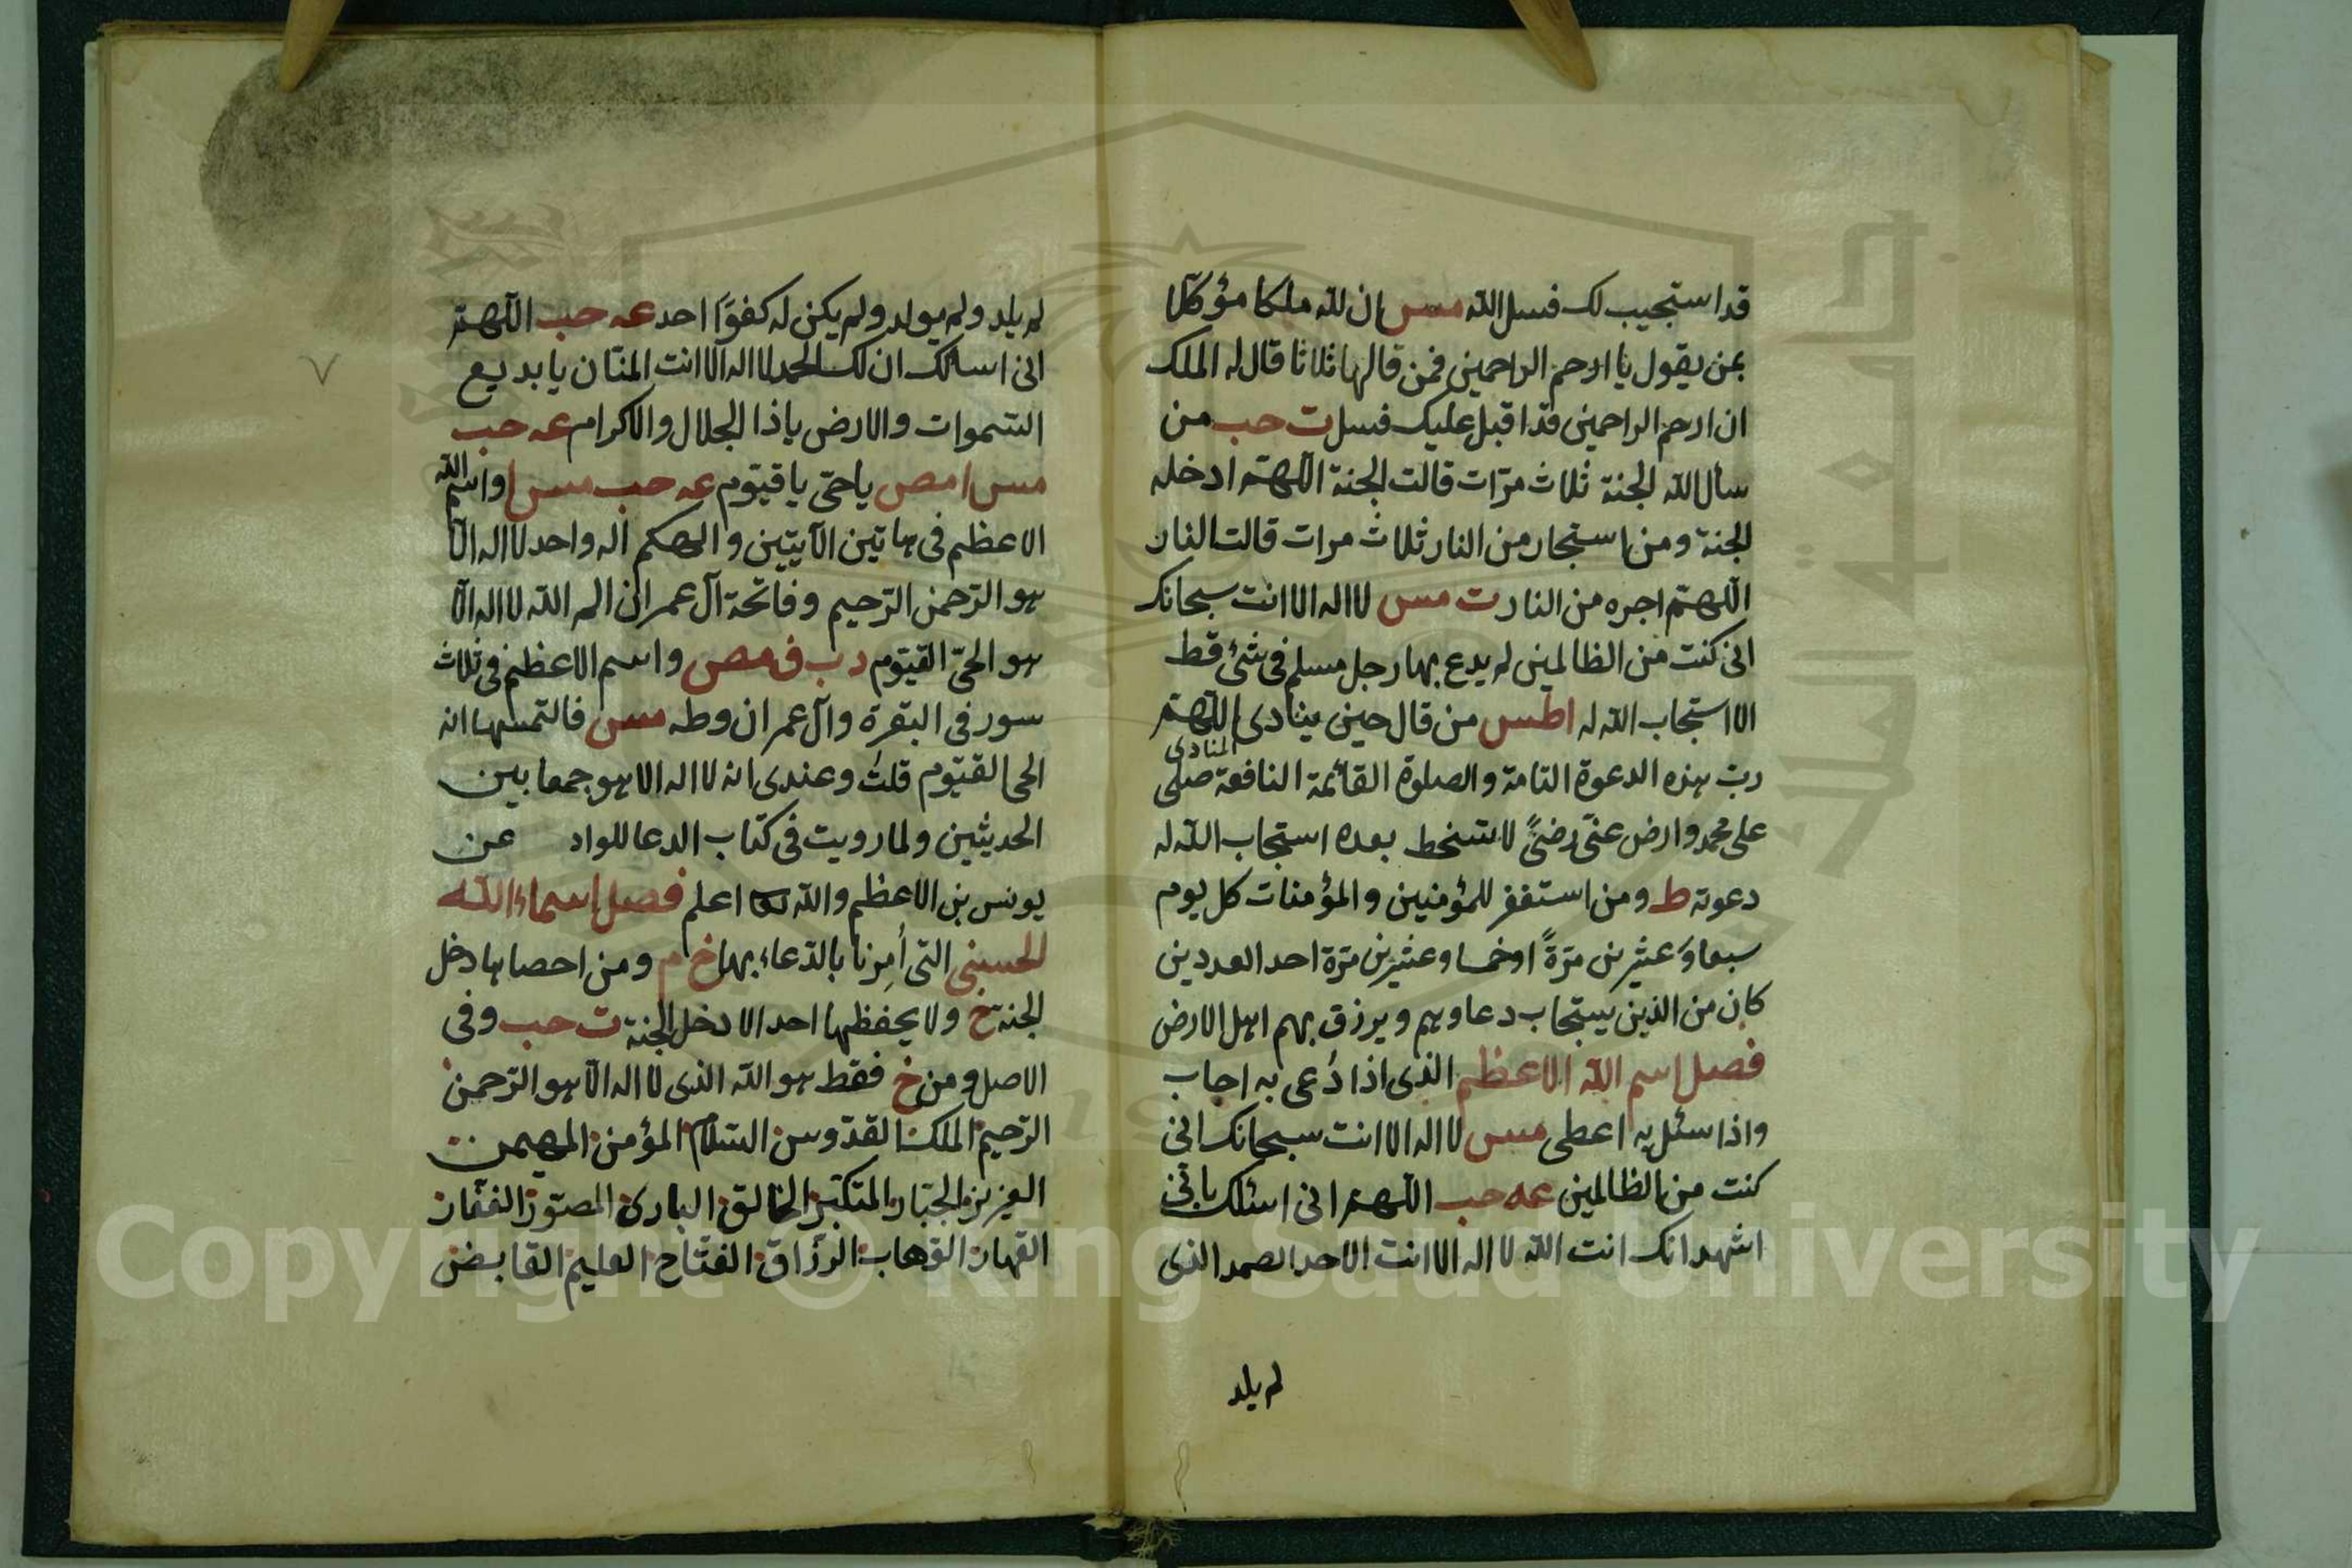 قد استجيب لك فسل الله مس ان لله ملكا مؤكلا
بمن يقول يا ارحم الراحمين فمن قالها ثلاثا قال له الملك
ان ارحم الراحمين قد اقبل عليك فسل ت حب من
سأل الله الجنة ثلاث مرّات قالت الجنة اللّهمّ ادخله
الجنة ومن استجار من النار ثلاث مرات قالت النار
اللّهمّ اجره من النار ت مس لا اله الا انت سبحانك
انى كنت من الظالمين لم يدع بها رجل مسلم فى شئ قط
الا استجاب الله له اطس من قال حين ينادى المنادى اللّهمّ
ربّ هذه الدعوة التامة والصلوة القائمة النافعة صلى
على محمد وارض عنّى رضىً لا تسخط بعده استجاب الله له
دعوته ط ومن استغفر للمؤمنين والمؤمنات كل يوم
سبعا وَعشرين مرّةً او خمسا وعشرين مرّة احد العددين
كان من الذين يستجاب دعاوهم ويرزق بهم اهل الارض
فصل اسم الله الاعظم الذى اذا دُعى به اجاب
واذا سئل به اعطى مس لا اله الا انت سبحانك انى
كنت من الظالمين عه حب اللّهمّ انى اسئلك بانّى
اشهد انك انت الله لا اله الا انت الاحد الصمد الذى
لم يلد
لم يلد ولم يولد ولم يكن له كفوًا احد عه حب اللّهمّ
انى اسألك ان لك الحمد لا اله الا انت المنّان يا بديع
السّموات والارض ياذا الجلال والاكرام عه حب
مس ا مص يا حىّ يا قيّوم عه حب مس ا واسم الله
الاعظم فى هاتين الآيتين والهكم اله واحد لا اله الّا
هو الرّحمن الرّحيم وفاتحة آل عمران الم الله لا اله الّا
هو الحىّ القيّوم د ب ق مص واسم الاعظم فى ثلاث
سور فى البقرة وآل عمران وطه مس فالتمسها انه
الحى القيّوم قلتُ وعندى انه لا اله الا هو جمعا بين
الحديثين ولما رويت فى كتاب الدعا للواد عن
يونس بن الاعظم والله اعلم فصل اسماء الله
الحسنى التى أُمِرنا بالدّعاء بها خ م ومن احصاها دخل
الجنة خ ولا يحفظها احد الا دخل الجنة ت حب وفى
الاصل ومن خ فقط هو الله الذى لا اله الّا هو الرّحمن
الرّحيم الملك القدّوس السّلام المؤمن المهيمن
العزيز الجبّار المتكبّر الخالق البارئ المصوّر الغفّار
القهار الوهاب الرزّاق الفتّاح العليم القابض
Copyright © King Saud University